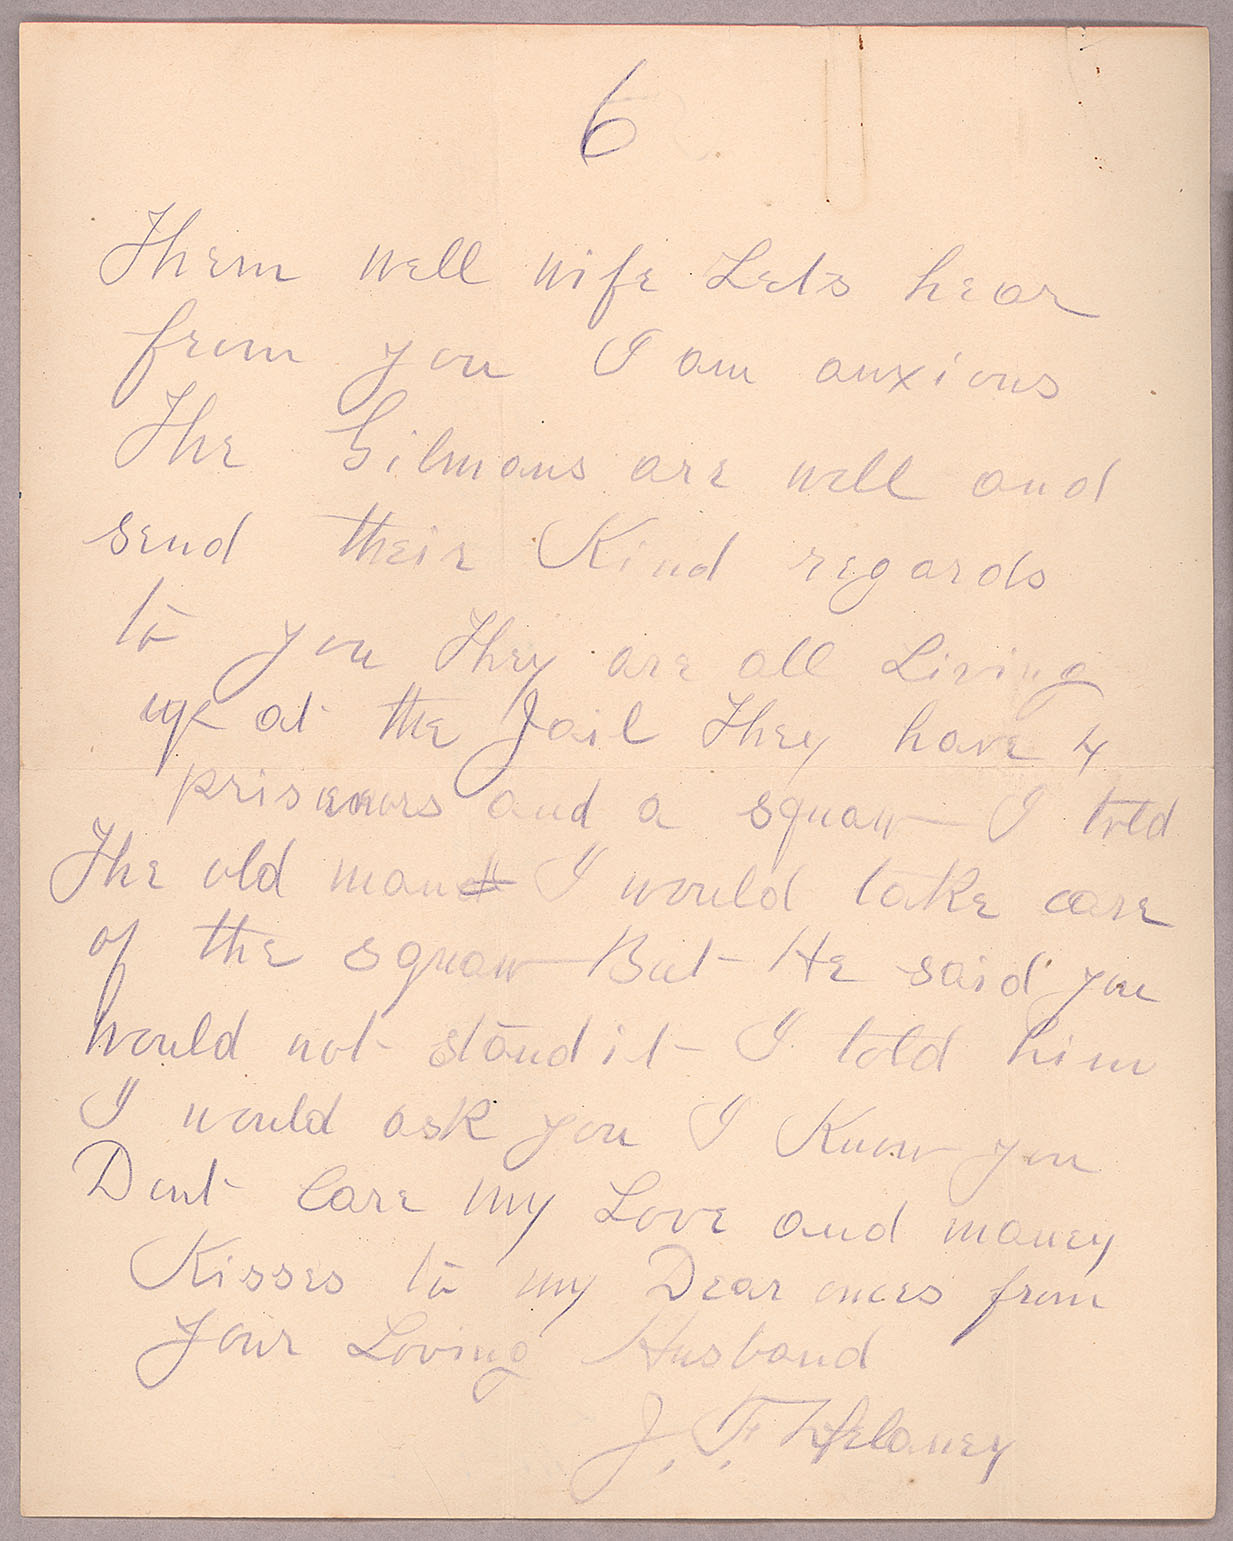 6
Them well wife Lets hear
from you I am anxious
The Gilmans are well and
send their Kind regards
to you They are all Living
up at the Jail They have 4
prisoners and a squaw I told
The old man I would take care
of the squaw But He said you
would not stand it I told him
I would ask you I Know you
Dont Care my Love and maney
Kisses to my Dear ones from
your Loving Husband
J. F. Delaney